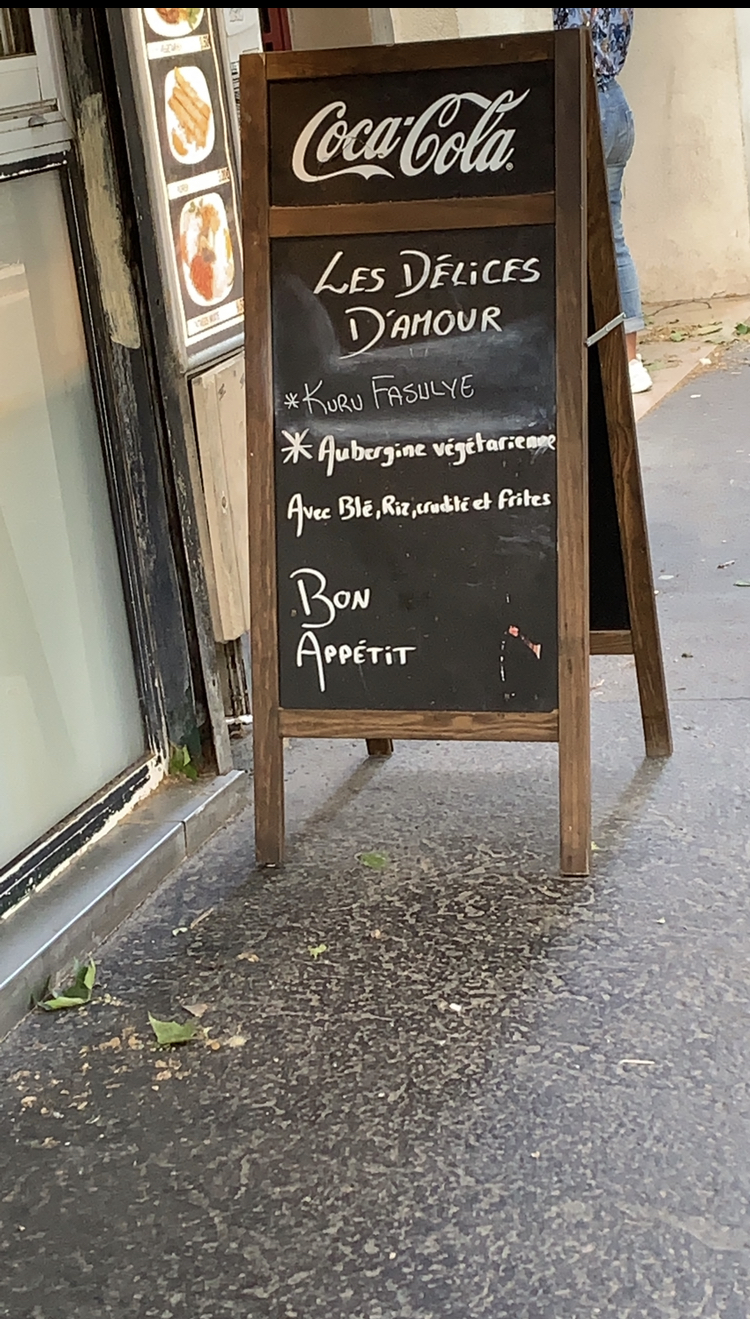 Coca-Cola
LES DÉLICES
D'AMOUR
*KURU FASULYE
*Aubergine végétarienne
Avec Blé, Riz, crudité et frites
BON
APPÉTIT